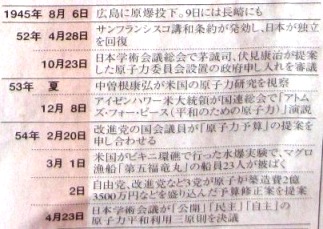 1945年 8月 6日 広島に原爆投下。9日には長崎にも
52年 4月28日 サンフランシスコ講和条約が発効し、日本が独立
を回復
10月23日 日本学術会議総会で茅誠司、伏見康治が提案
した原子力委員会設置の政府申し入れを審議
53年 夏 中曽根康弘が米国の原子力研究を視察
12月 8日 アイゼンハワー米大統領が国連総会で「アトム
ズ・フォー・ピース(平和のための原子力)」演説
54年 2月20日 改進党の国会議員が「原子力予算」の提案を
申し合わせる
3月 1日 米国がビキニ環礁で行った水爆実験で、マグロ
漁船「第五福竜丸」の船員23人が被ばく
2日 自由党、改進党など3党が原子炉築造費2億
3500万円などを盛り込んだ予算修正案を提案
4月23日 日本学術会議が「公開」「民主」「自主」の
原子力平和利用三原則を決議